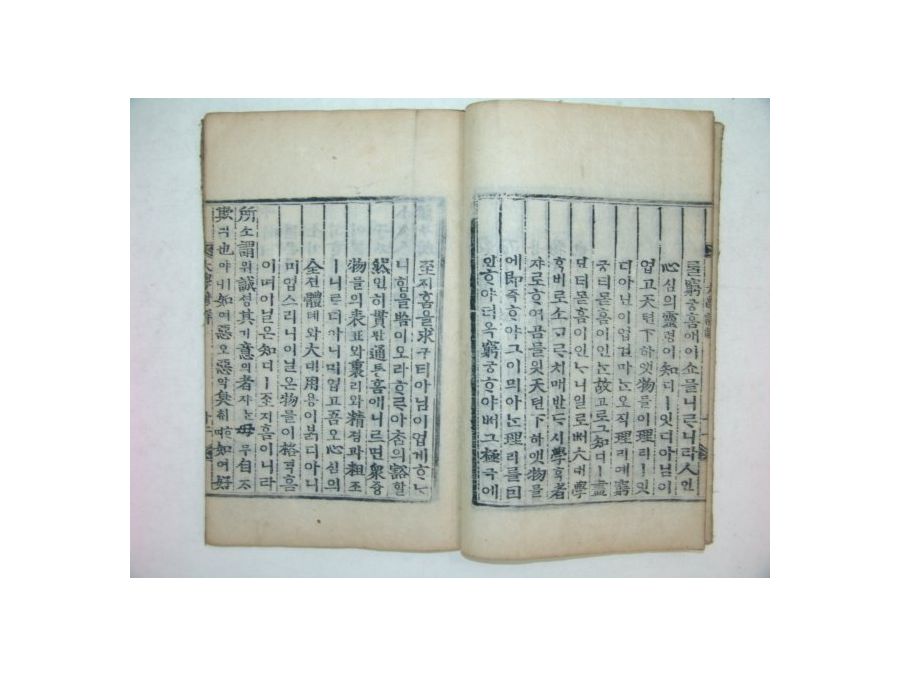 를窮궁홈애이쇼믈니ᄅᆞ니라人인
心심의靈령이知디ㅣ잇디아닐이
업고天텬下하앳物믈이理리ㅣ잇
디아닌이업건마ᄂᆞᆫ오직理리예窮
궁티몯홈이인ᄂᆞᆫ故고로그知디ㅣ盡
진티몯홈이인ᄂᆞ니일로ᄡᅥ大대學
ᄒᆞᆨ비로소ᄀᆞᄅᆞ치매반ᄃᆞ시學ᄒᆞᆨ者
쟈로ᄒᆞ여곰믈읫天텬下하앳物믈
에即즉ᄒᆞ야그이믜아ᄂᆞᆫ理리를因
인ᄒᆞ야더옥窮궁ᄒᆞ야ᄡᅥ그極극에
至지홈을求구티아님이업게ᄒᆞᄂᆞ
니힘을ᄡᅳᆷ이오라ᄒᆞᄅᆞ아ᄎᆞᆷ의豁할
然연히貫관通통홈애니르면衆즁
物믈의表표와裏리와精졍과粗조
ㅣ니르디아니미업고吾오心심의
全젼體톄와大대用용이ᄇᆞᆰ디아니
미업스리니이닐온物믈이格격홈
이며이닐온知디ㅣ至지홈이니라
所소謂위誠셩其기意의者쟈ᄂᆞᆫ毋무自ᄌᆞ
欺긔也야ㅣ니如여惡오惡악臭취ᄒᆞ며如여好
大學諺解